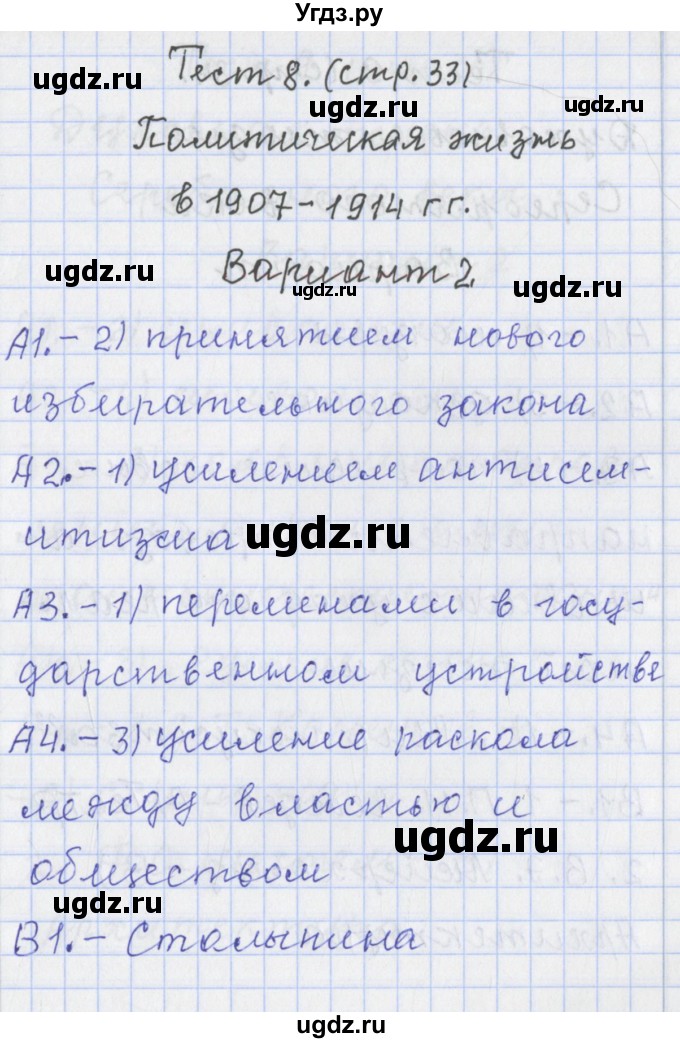 Угдз.ру
Тест 8. (стр. 33)
ugdz.ru
ugdz.ru
Политическая жизнь
в 1907-1914 гг.
ugdz.ru
Вариант 2
ugdz.ru
ugdz.ru
А1.- 2) принятием нового
избирательного закона
А2.- 1) усилением антисем-
итизма
ugdz.ru
А3.- 1) переменами в госу-
дарственном устройстве
А4.- 3) усиление раскола
между властью и
ugdz.ru
обществом
ugdz.ru
В1.- Столыпина
ugdz.ru